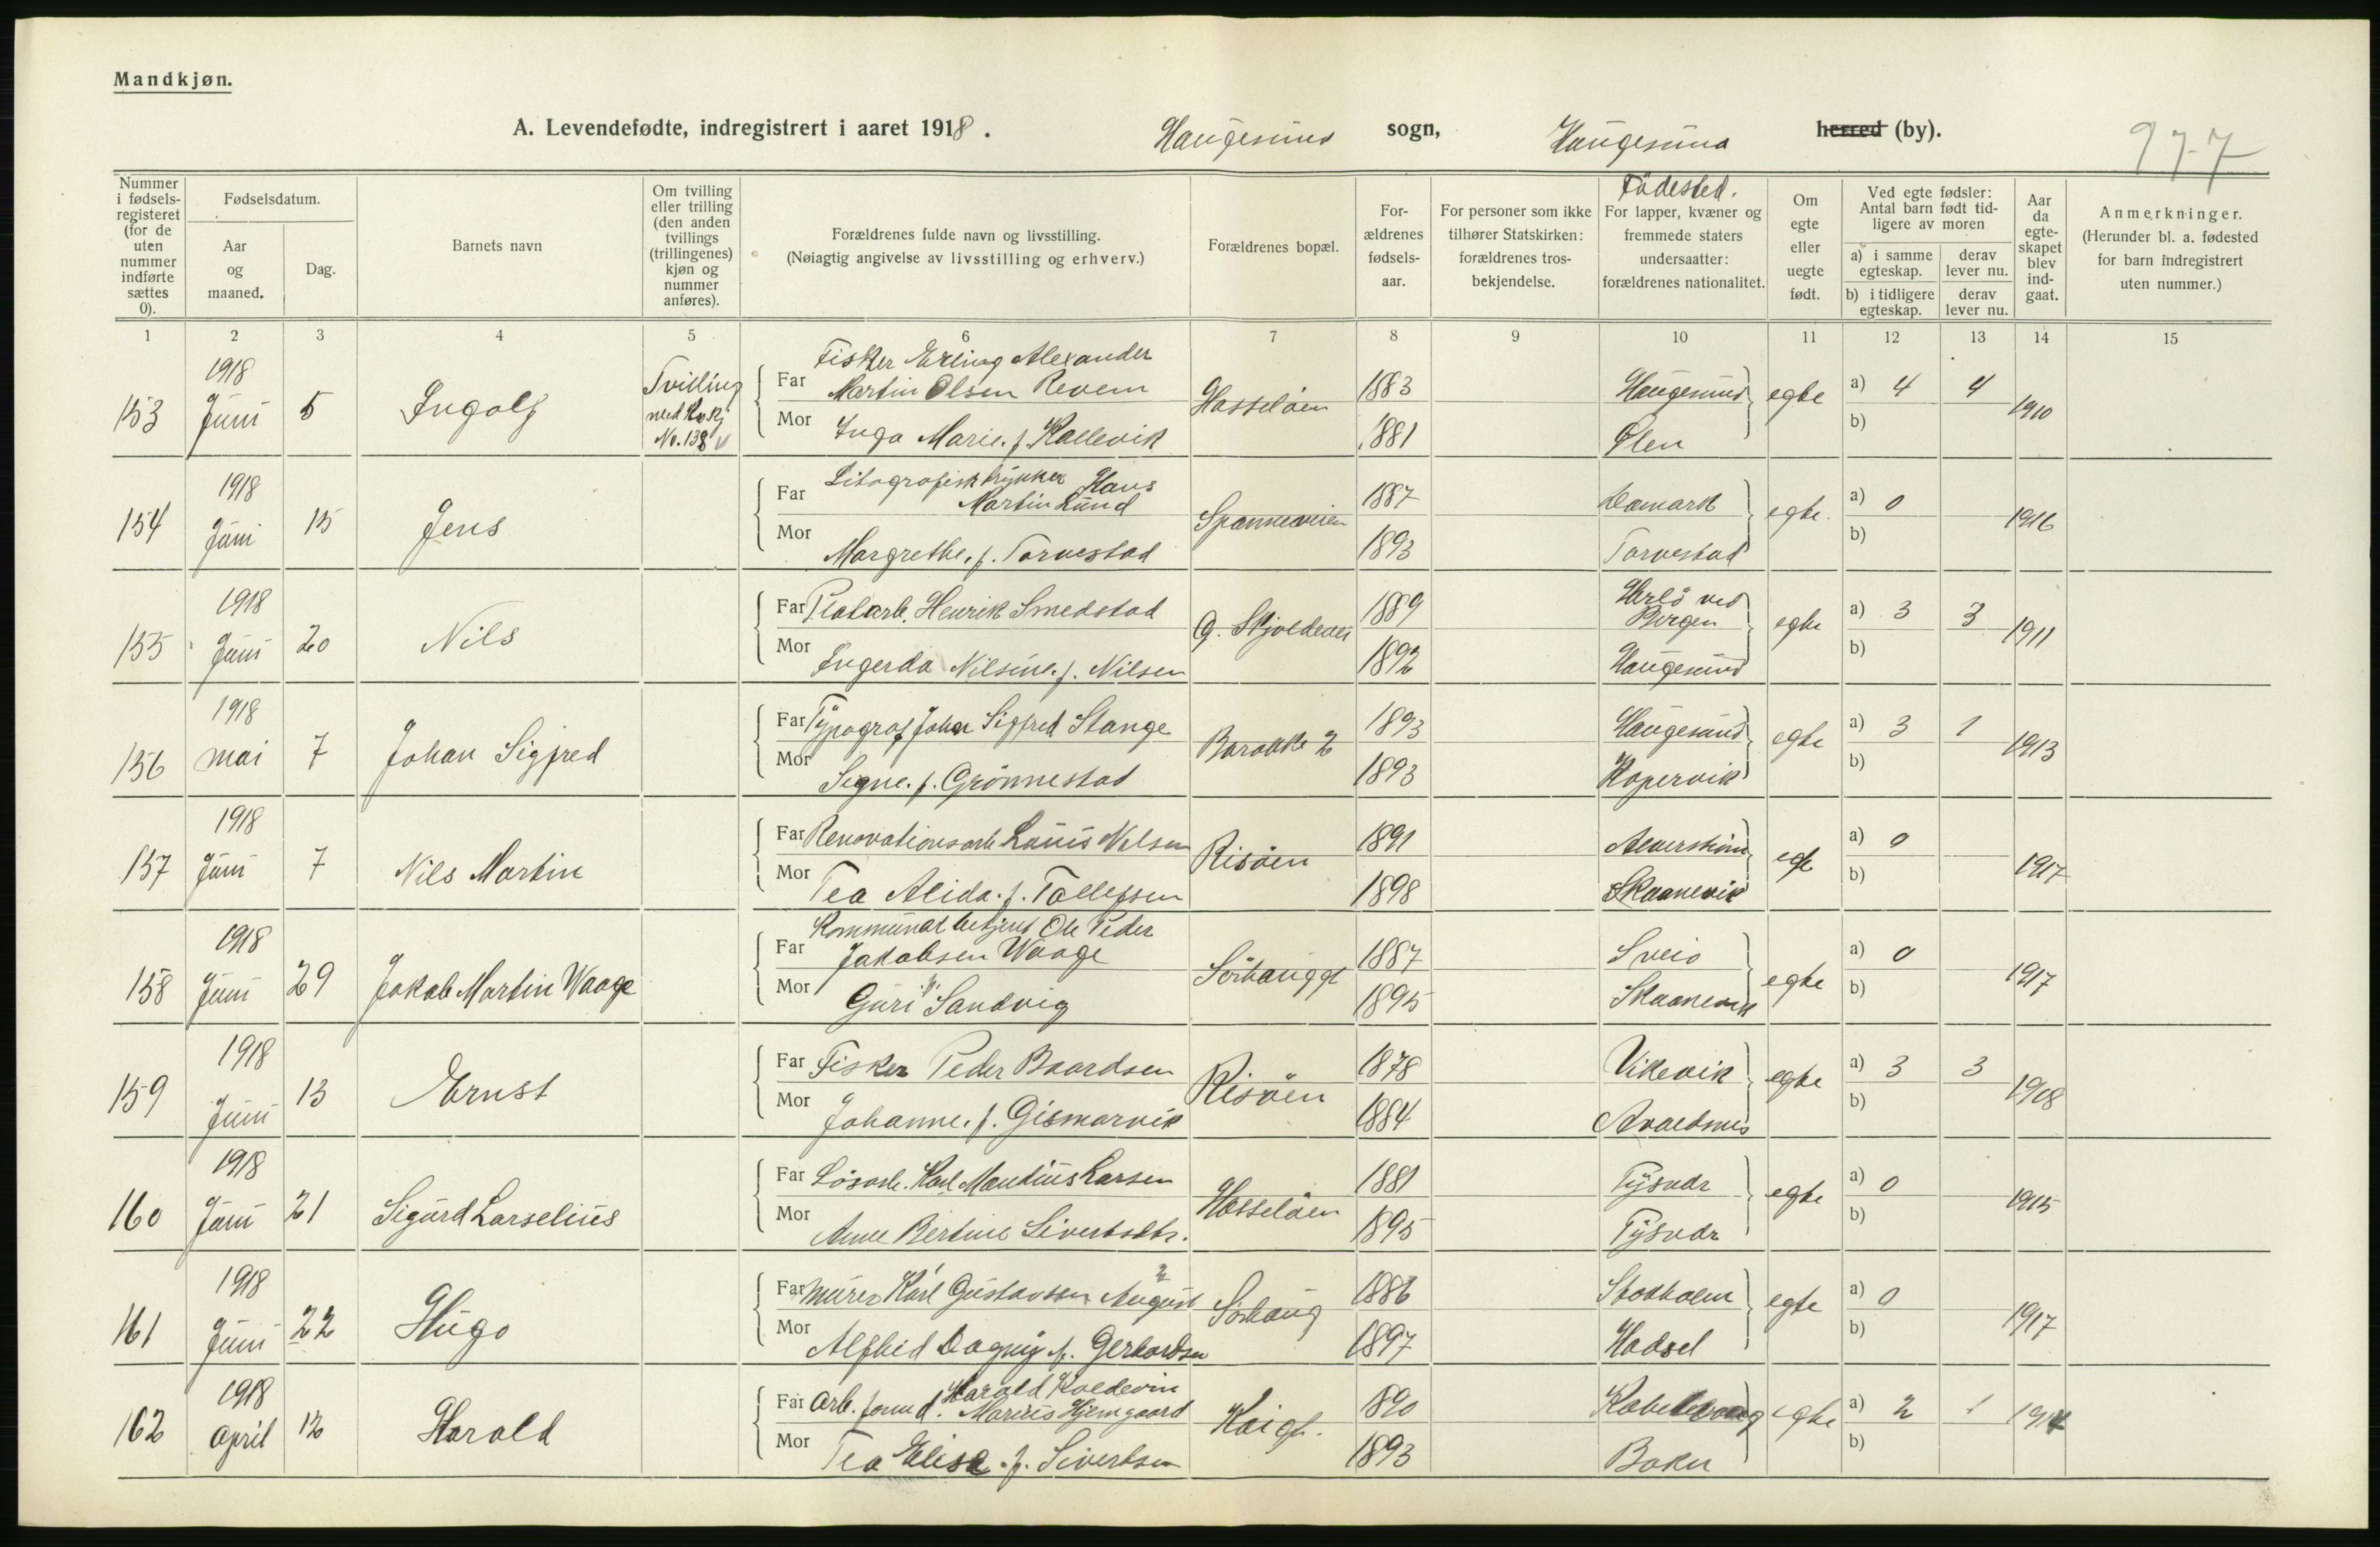 Mandkjøn.
A. Levendefødte, indregistrert i aaret 1918. Haugesund sogn, Haugesund herred (by). 977
Nummer i fødselsregisteret (for de uten nummer indførte sættes 0).
Fødselsdatum.
Aar og maaned.
Dag.
Barnets navn
Om tvilling eller trilling (den anden tvillings (trillingenes) kjøn og nummer anføres).
Forældrenes fulde navn og livsstilling.
(Nøiagtig angivelse av livsstilling og erhverv.)
Forældrenes bopæl.
Forældrenes fødselsaar.
For personer som ikke tilhører Statskirken: forældrenes trosbekjendelse.
Födested.
For lapper, kvæner og fremmede staters undersaatter: forældrenes nationalitet.
Om egte eller uegte født.
Ved egte fødsler: Antal barn født tidligere av moren
a) i samme egteskap. derav lever nu.
b) i tidligere egteskap. derav lever nu.
Aar da egteskapet blev indgaat.
Anmerkninger.
(Herunder bl. a. fødested for barn indregistrert uten nummer.)
1 2 3 4 5 6 7 8 9 10 11 12 13 14 15
153 1918 Juni 5 Ingolf Tvilling med Kv.kj No. 138
Far Fisker Erling Alexander Martin Olsen Revem Hasseløen 1883 Haugesund egte a) 4 4 1910
Mor Inga Marie. f. Kallevik 1881 Ølen b)
154 1918 Juni 15 Jens
Far Litografisk trykker Hans Martin Lund Spanneveien 1887 Damark egte. a) 0 1916
Mor Margrethe. f. Torvestad 1893 Torvestad b)
155 1918 Juni 20 Nils
Far Platarb. Henrik Smedstad G. Skjoldevei 1889 Herlö ved Bergen egte a) 3 3 1911
Mor Ingerda Nilsine. f. Nilsen 1892 Haugesund b)
156 1918 mai 7 Johan Sigfred
Far Typograf Johan Sigfred Stange Barakke 2 1893 Haugesund egte a) 3 1 1913
Mor Signe. f. Grönnestad 1893 Kopervik b)
157 1918 Juni 7 Nils Martin
Far Renovationsarb Louis Nilsen Risöen 1891 egte a) 0 1917
Mor Tea Alida. f. Tollefsen 1898 Skaanevik b)
158 1918 Juni 29 Jakob Martin Waage
Far Kommunal betjent Ole Peder Jakobsen Waage Sörhauggt 1887 Sveio egte a) 0 1917
Mor Guri f. Sandvig 1895 Skaanevik b)
159 1918 Juni 13 Ernst
Far Fisker Peder Baardsen Risöen 1878 Vikevik egte a) 3 3 1908
Mor Johanne. f. Gismarvik 1884 Avaldsnes b)
160 1918 Juni 21 Sigurd Larselius
Far Lösarb. Karl Mautius Larsen Hasseløen 1881 Tysvær egte a) 0 1915
Mor Anne Bertine Sivertsdtr. 1895 Tysvær b)
161 1918 Juni 22 Hugo
Far murer Karl Gustavsen August Sörhaug 1886 Stokholm egte a) 0 1917
Mor Alfhild Dagny f. Gerhardsen 1897 Hadsel b)
162 1918 April 12 Harald
Far Arb. formd. Harald Koldevin Marius Hjemgaard Kaigt. 1890 Kabelvaag egte a) 2 1 1914
Mor Tea Elise. f. Sivertsen 1893 Boken b)